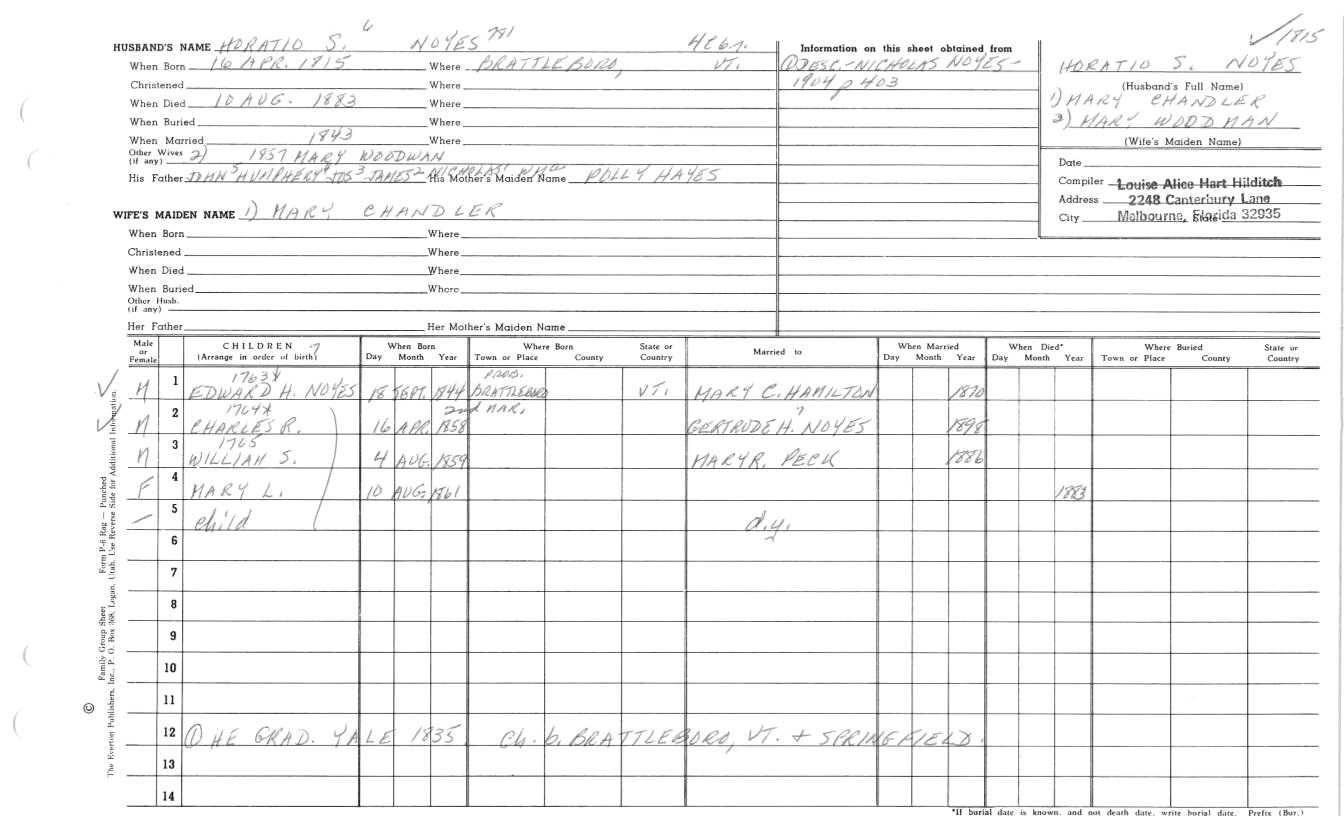 ✓1815
HUSBAND'S NAME HORATIO S. 6 NOYES 781 4Cbn.
When Born 16 APR. 1815 Where BRATTLEBORO, VT.
Christened Where
When Died 10 AUG. 1883 Where
When Buried Where
When Married 1843 Where
Other Wives (if any) 2) 1857 MARY WOODWAN
His Father JOHN 5 HUMPHERY 4 JOS 3 JAMES 2 NICHOLAS 1 WM His Mother's Maiden Name POLLY HAYES
WIFE'S MAIDEN NAME 1) MARY CHANDLER
When Born Where
Christened Where
When Died Where
When Buried Where
Other Husb. (if any)
Her Father Her Mother's Maiden Name
Information on this sheet obtained from
① DESC.-NICHOLAS NOYES-
1904 p 403
HORATIO S. NOYES
(Husband's Full Name)
1) MARY CHANDLER
2) MARY WOODMAN
(Wife's Maiden Name)
Date
Compiler Louise Alice Hart Hilditch
Address 2248 Canterbury Lane
City Melbourne, Florida 32935 State
Male or Female CHILDREN 7 (Arrange in order of birth) When Born Day Month Year Where Born Town or Place County State or Country Married to When Married Day Month Year When Died* Day Month Year Where Buried Town or Place County State or Country
✓ M 1 1763* EDWARD H. NOYES 18 SEPT. 1844 PROB. BRATTLEBORO VT. MARY C. HAMILTON 1870
2nd MAR.
✓ M 2 1764* CHARLES R. 16 APR. 1858 GERTRUDE H. 7 NOYES 1898
M 3 1765 WILLIAM S. 4 AUG. 1859 MARY R. PECK 1886
F 4 MARY L. 10 AUG. 1861 1883
– 5 child d.y.
6
7
8
9
10
11
12 ① HE GRAD. YALE 1835. Ch. b. BRATTLEBORO, VT. + SPRINGFIELD.
13
14
*If burial date is known, and not death date, write burial date. Prefix (Bur.)
© Family Group Sheet Form P-8 Rag — Punched
The Everton Publishers, Inc., P. O. Box 368, Logan, Utah. Use Reverse Side for Additional Information.